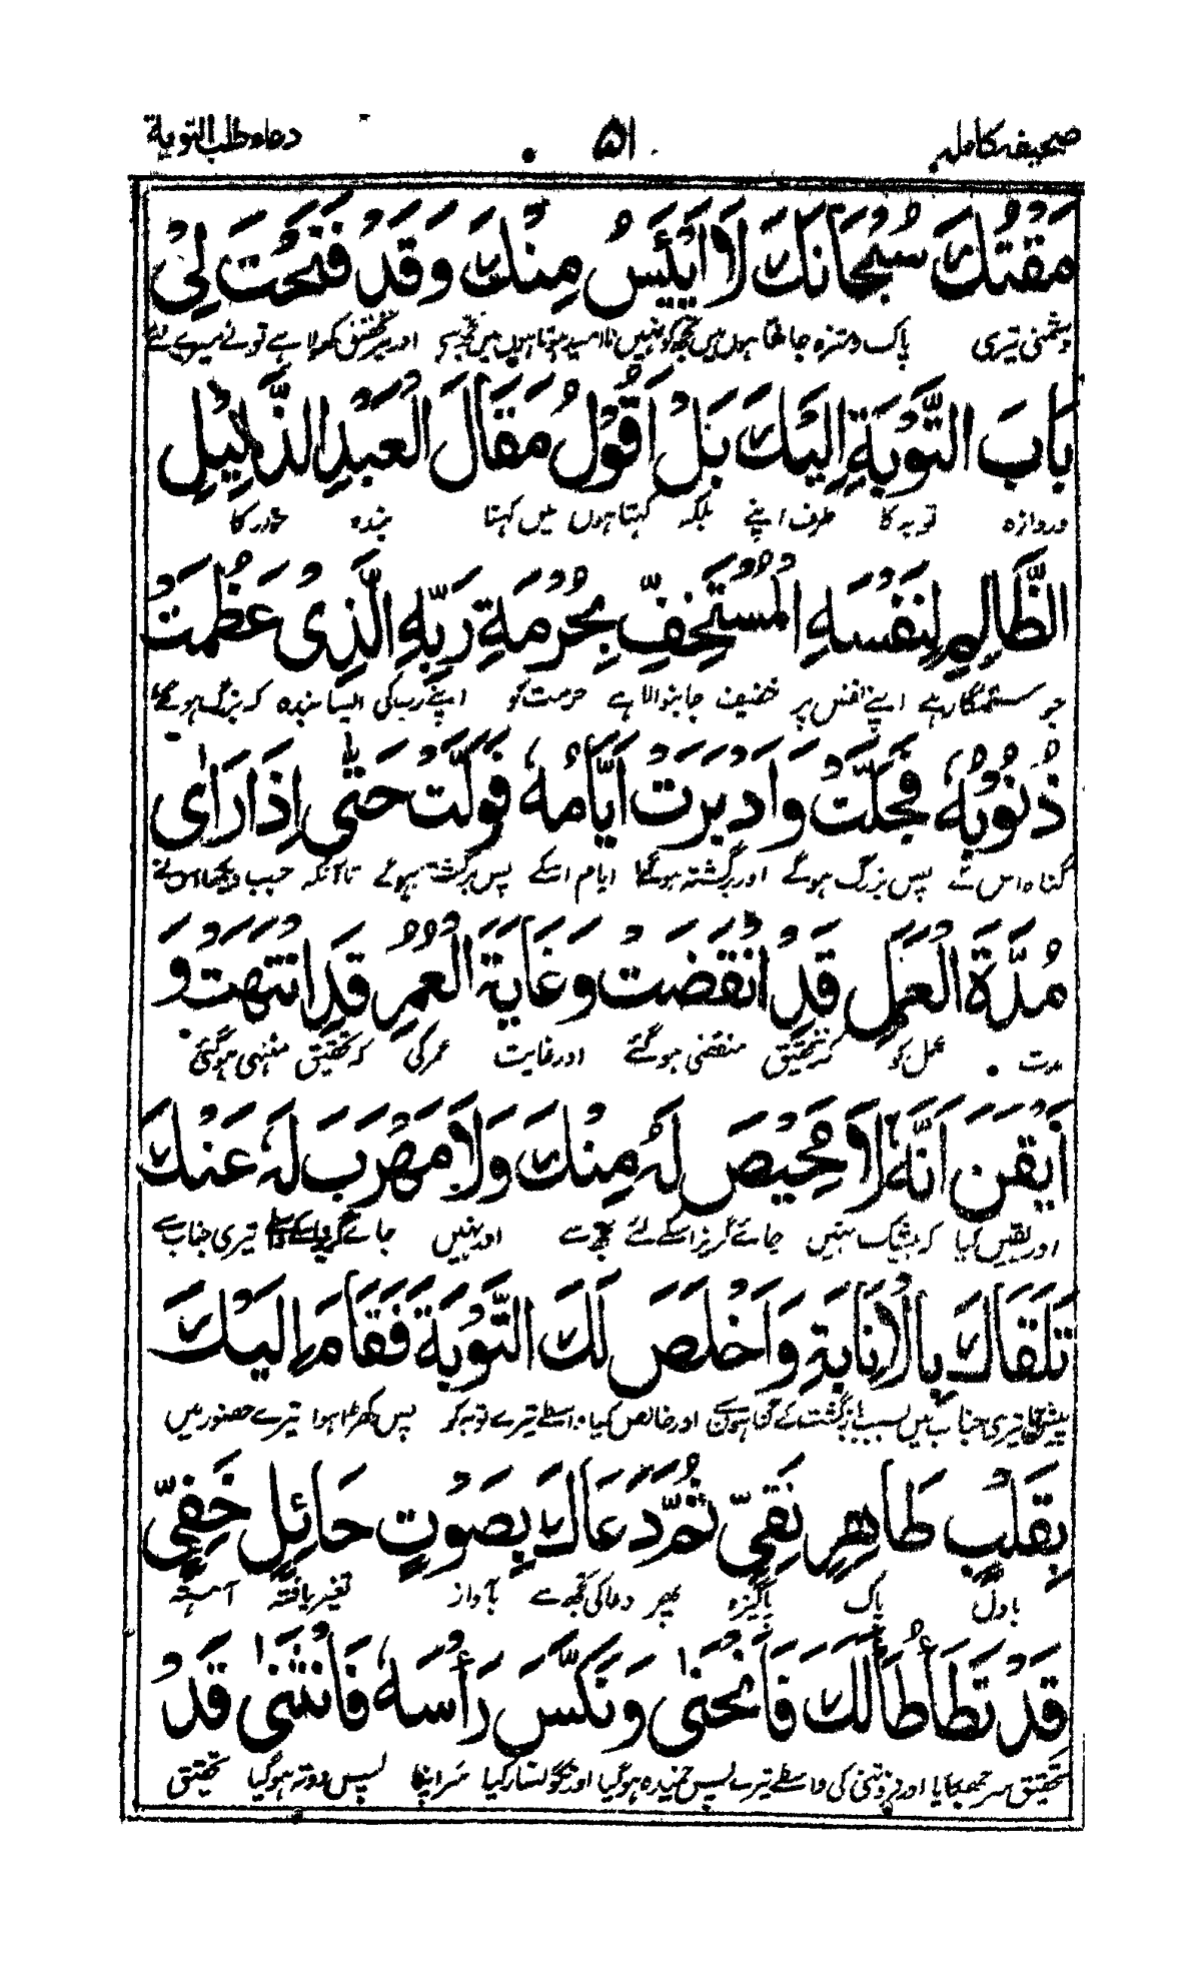 صحیفہ کاملہ ۵۱ دعاء طلب التوبة
مَقْتُكَ سُبْحَانَكَ لَا اَيْئَسُ مِنْكَ وَقَدْ فَتَحْتَ لِيْ
دشمنی تیری پاک و منزہ جانتا ہوں میں تجھ کو نہیں ناامید ہوتا ہوں میں تجھ سے اور تحقیق کھولا ہے تونے میرے لئے
بَابَ التَّوْبَةِ اِلَيْكَ بَلْ اَقُوْلُ مَقَالَ الْعَبْدِ الذَّلِيْلِ
دروازہ توبہ کا طرف اپنے بلکہ کہتا ہوں میں کہنا بندہ
الظَّالِمِ لِنَفْسِهِ الْمُسْتَخِفِّ بِحُرْمَةِ رَبِّهِ الَّذِىْ عَظُمَتْ
جو ستمگار ہے اپنے نفس پر خفیف جاننے والا ہے حرمت کو اپنے رب کی ایسا بندہ کہ بزرگ ہو گئے
ذُنُوْبُهٗ فَجَلَّتْ وَاَدْبَرَتْ اَيَّامُهٗ فَوَلَّتْ حَتّٰى اِذَا رَاٰى
گناہ اس کے پس بزرگ ہو گے اور برگشتہ ہو گے ایام اسکے پس برگشتہ ہوئے تا آنکہ جب دیکھا اس نے
مُدَّةَ الْعَمَلِ قَدِ انْقَضَتْ وَغَايَةَ الْعُمُرِ قَدِ انْتَهَتْ وَ
مدت عمل کو کہ تحقیق منقضی ہو گئے اور غایت عمر کی کہ تحقیق منتہی ہو گئی
اَيْقَنَ اَنَّهٗ لَا مَحِيْصَ لَهٗ مِنْكَ وَلَا مَهْرَبَ لَهٗ عَنْكَ
اور یقین کیا کہ بیشک نہیں جائے گریز اسکے لئے تجھ سے اور نہیں جائے گریز تیری جناب سے
تَلَقَّاكَ بِالْاِنَابَةِ وَاَخْلَصَ لَكَ التَّوْبَةَ فَقَامَ اِلَيْكَ
تیری جناب میں بسبب بازگشت کے اور خالص کیا واسطے تیرے توبہ کو پس کھڑا ہوا تیرے حضور میں
بِقَلْبٍ طَاهِرٍ نَقِيٍّ ثُمَّ دَعَاكَ بِصَوْتٍ حَائِلٍ خَفِيٍّ
بادل پاک پاکیزہ پھر دعا کی تجھ سے بآواز تغیر یافتہ آہستہ
قَدْ تَطَاْطَاَ لَكَ فَانْحَنٰى وَنَكَّسَ رَأْسَهٗ فَانْثَنٰى قَدْ
تحقیق سر جھکایا اور فروتنی کی واسطے تیرے پس خمیدہ ہو گیا اور نگونسار کیا سر اپنا پس دوتہ ہو گیا تحقیق